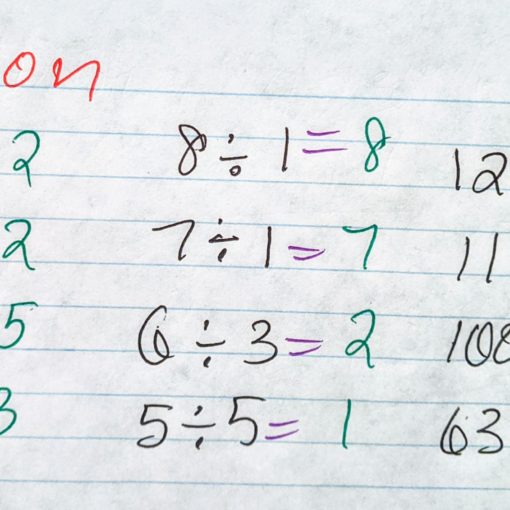 on
2 8 ÷ 1 = 8 12
2 7 ÷ 1 = 7 11
5 6 ÷ 3 = 2 108
3 5 ÷ 5 = 1 63